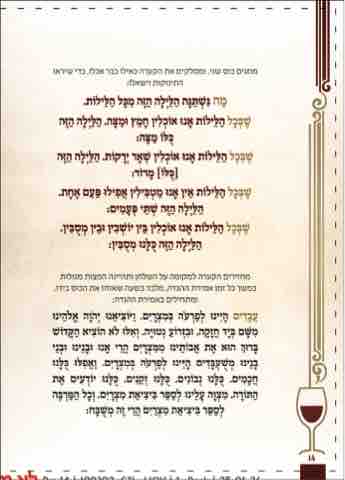 מוזגים כוס שני, ומסלקים את הקערה כאילו כבר אכלו, כדי שיראו
התינוקות וישאלו:
מַה נִּשְׁתַּנָּה הַלַּיְלָה הַזֶּה מִכָּל הַלֵּילוֹת,
שֶׁבְּכָל הַלֵּילוֹת אָנוּ אוֹכְלִין חָמֵץ וּמַצָּה, הַלַּיְלָה הַזֶּה
כֻּלּוֹ מַצָּה:
שֶׁבְּכָל הַלֵּילוֹת אָנוּ אוֹכְלִין שְׁאָר יְרָקוֹת, הַלַּיְלָה הַזֶּה
[כֻּלּוֹ] מָרוֹר:
שֶׁבְּכָל הַלֵּילוֹת אֵין אָנוּ מַטְבִּילִין אֲפִילוּ פַּעַם אֶחָת,
הַלַּיְלָה הַזֶּה שְׁתֵּי פְּעָמִים:
שֶׁבְּכָל הַלֵּילוֹת אָנוּ אוֹכְלִין בֵּין יוֹשְׁבִין וּבֵין מְסֻבִּין,
הַלַּיְלָה הַזֶּה כֻּלָּנוּ מְסֻבִּין:
מחזירים הקערה למקומה על השלחן ותהיינה המצות מגולות
במשך כל זמן אמירת ההגדה, מלבד בשעה שאוחז את הכוס בידו,
ומתחילים באמירת ההגדה:
עֲבָדִים הָיִינוּ לְפַרְעֹה בְּמִצְרָיִם, וַיּוֹצִיאֵנוּ יְהֹוָה אֱלֹהֵינוּ
מִשָּׁם בְּיָד חֲזָקָה, וּבִזְרוֹעַ נְטוּיָה, וְאִלּוּ לֹא הוֹצִיא הַקָּדוֹשׁ
בָּרוּךְ הוּא אֶת אֲבוֹתֵינוּ מִמִּצְרָיִם הֲרֵי אָנוּ וּבָנֵינוּ וּבְנֵי
בָנֵינוּ מְשֻׁעְבָּדִים הָיִינוּ לְפַרְעֹה בְּמִצְרָיִם, וַאֲפִלּוּ כֻּלָּנוּ
חֲכָמִים, כֻּלָּנוּ נְבוֹנִים, כֻּלָּנוּ זְקֵנִים, כֻּלָּנוּ יוֹדְעִים אֶת
הַתּוֹרָה, מִצְוָה עָלֵינוּ לְסַפֵּר בִּיצִיאַת מִצְרָיִם, וְכָל הַמַּרְבֶּה
לְסַפֵּר בִּיצִיאַת מִצְרַיִם הֲרֵי זֶה מְשֻׁבָּח:
14